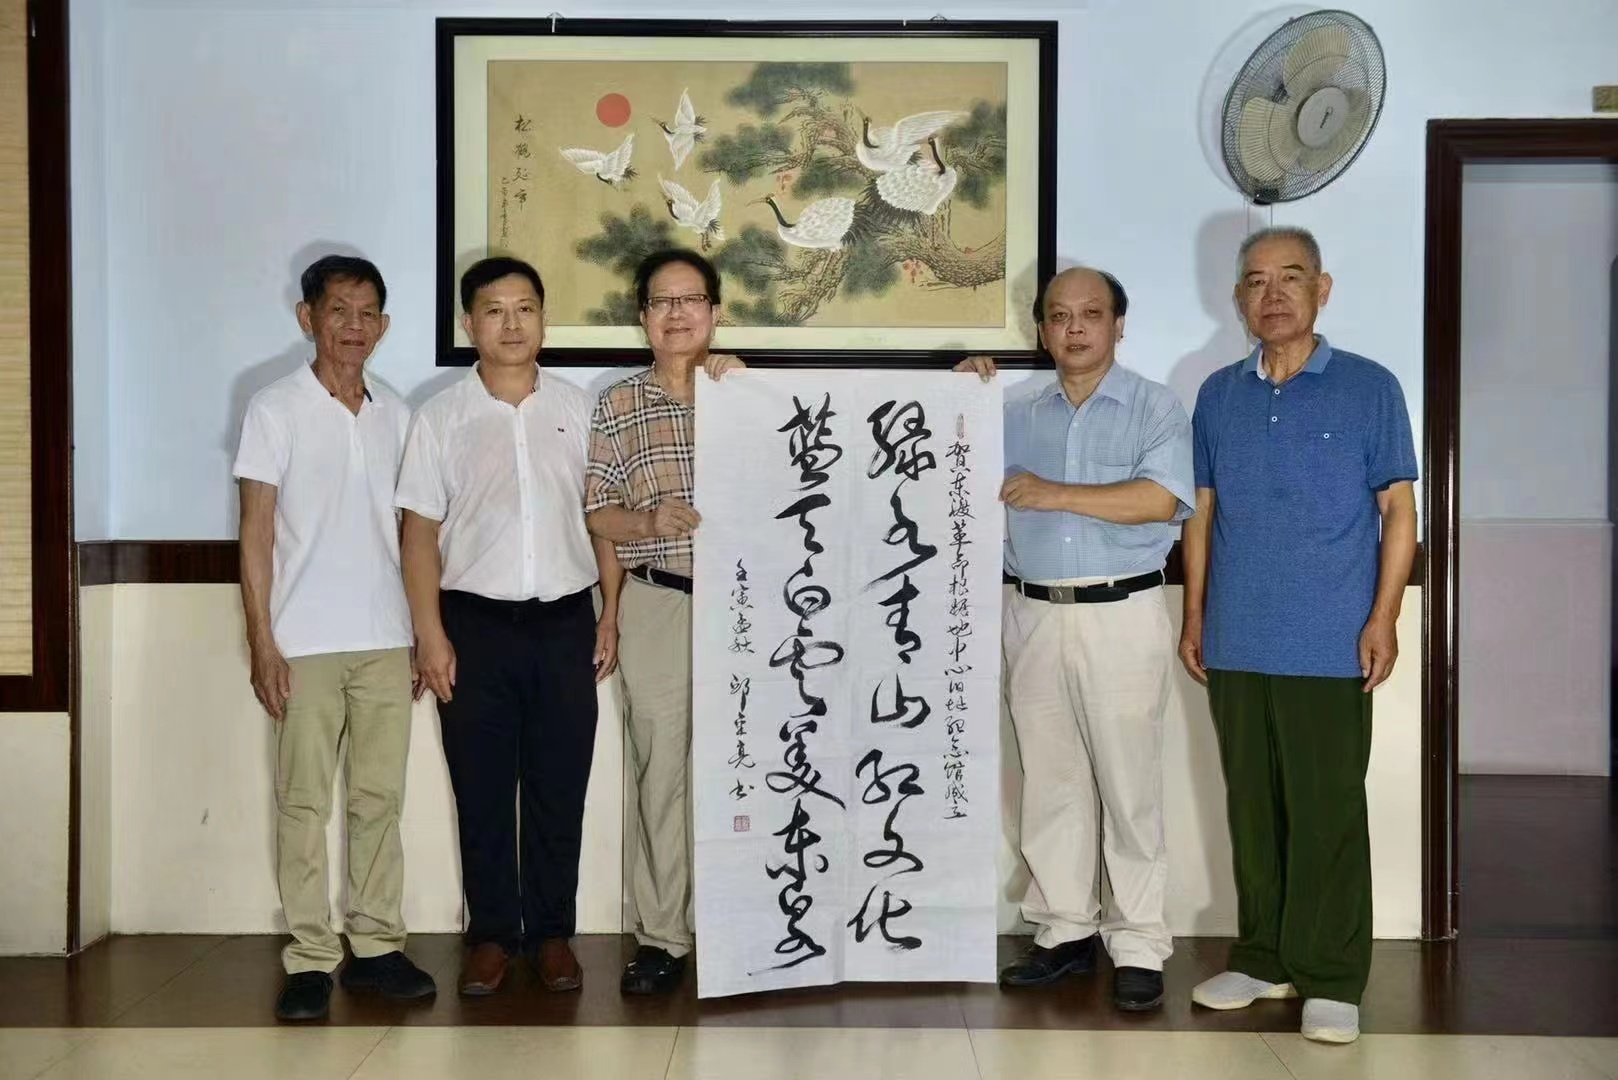 松鶴延年
賀东溪革命根据地中心旧址纪念馆成立
绿水青山红文化
蓝天白云美东泉
壬寅孟秋
书